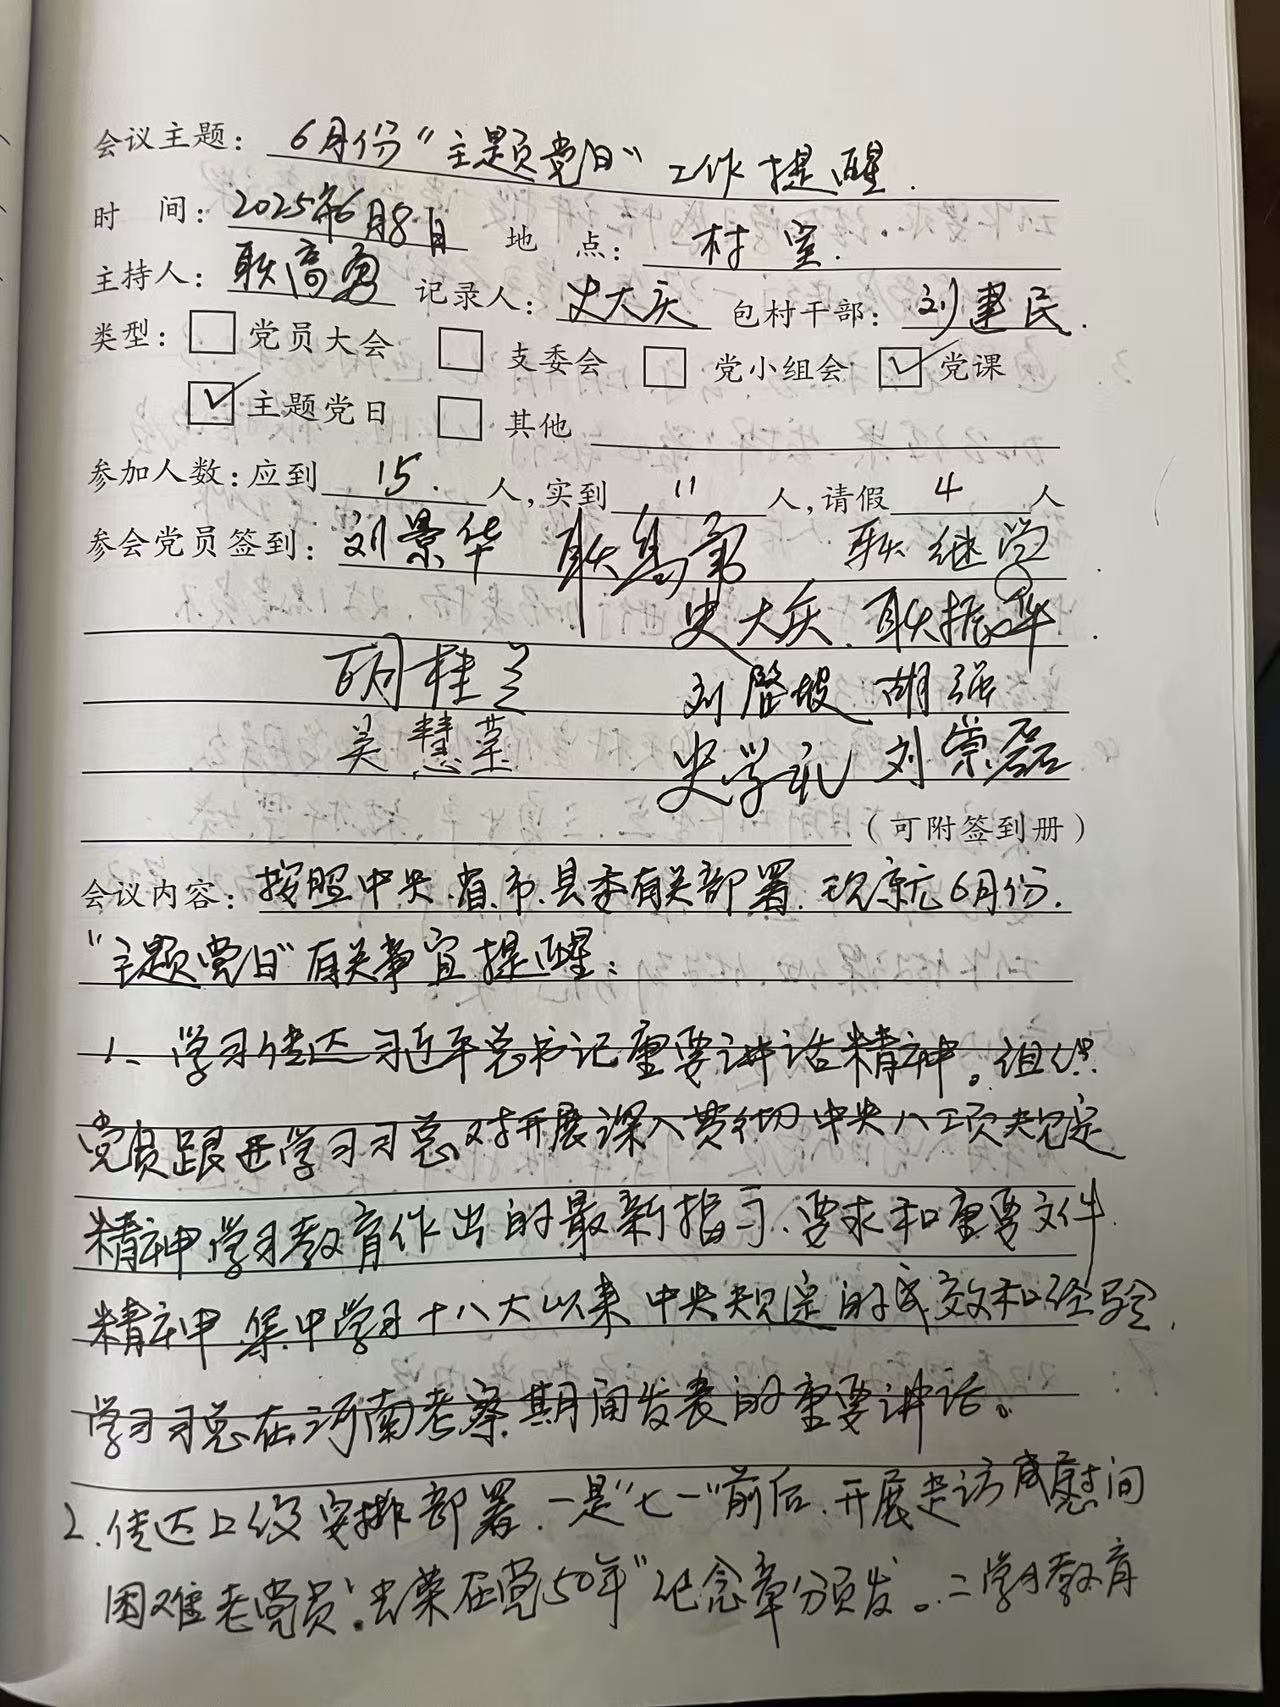 会议主题：6月份“主题党日”工作提醒.
时 间：2025年6月8日 地 点：村室.
主持人：耿高勇 记录人：史大庆 包村干部：刘建民.
类型：□党员大会 □支委会 □党小组会 ☑党课
☑主题党日 □其他
参加人数：应到 15. 人,实到 11 人,请假 4 人
参会党员签到：刘景华 耿高勇 耿继学
史大庆. 耿振华.
胡桂兰 刘 坡 胡强
吴慧荣 史学礼 刘崇磊
（可附签到册）
会议内容：按照中央.省.市.县委有关部署.现就6月份.
“主题党日”有关事宜提醒：
1、学习传达习近平总书记重要讲话精神。组织
党员跟进学习习总对开展深入贯彻中央八项规定
精神学习教育作出的最新指示、要求和重要文件
精神.集中学习十八大以来中央规定的成效和经验.
学习习总在河南考察期间发表的重要讲话。
2.传达上级安排部署.一是“七一”前后.开展走访 慰问
困难老党员.“光荣在党50年”纪念章颁发。二学习教育